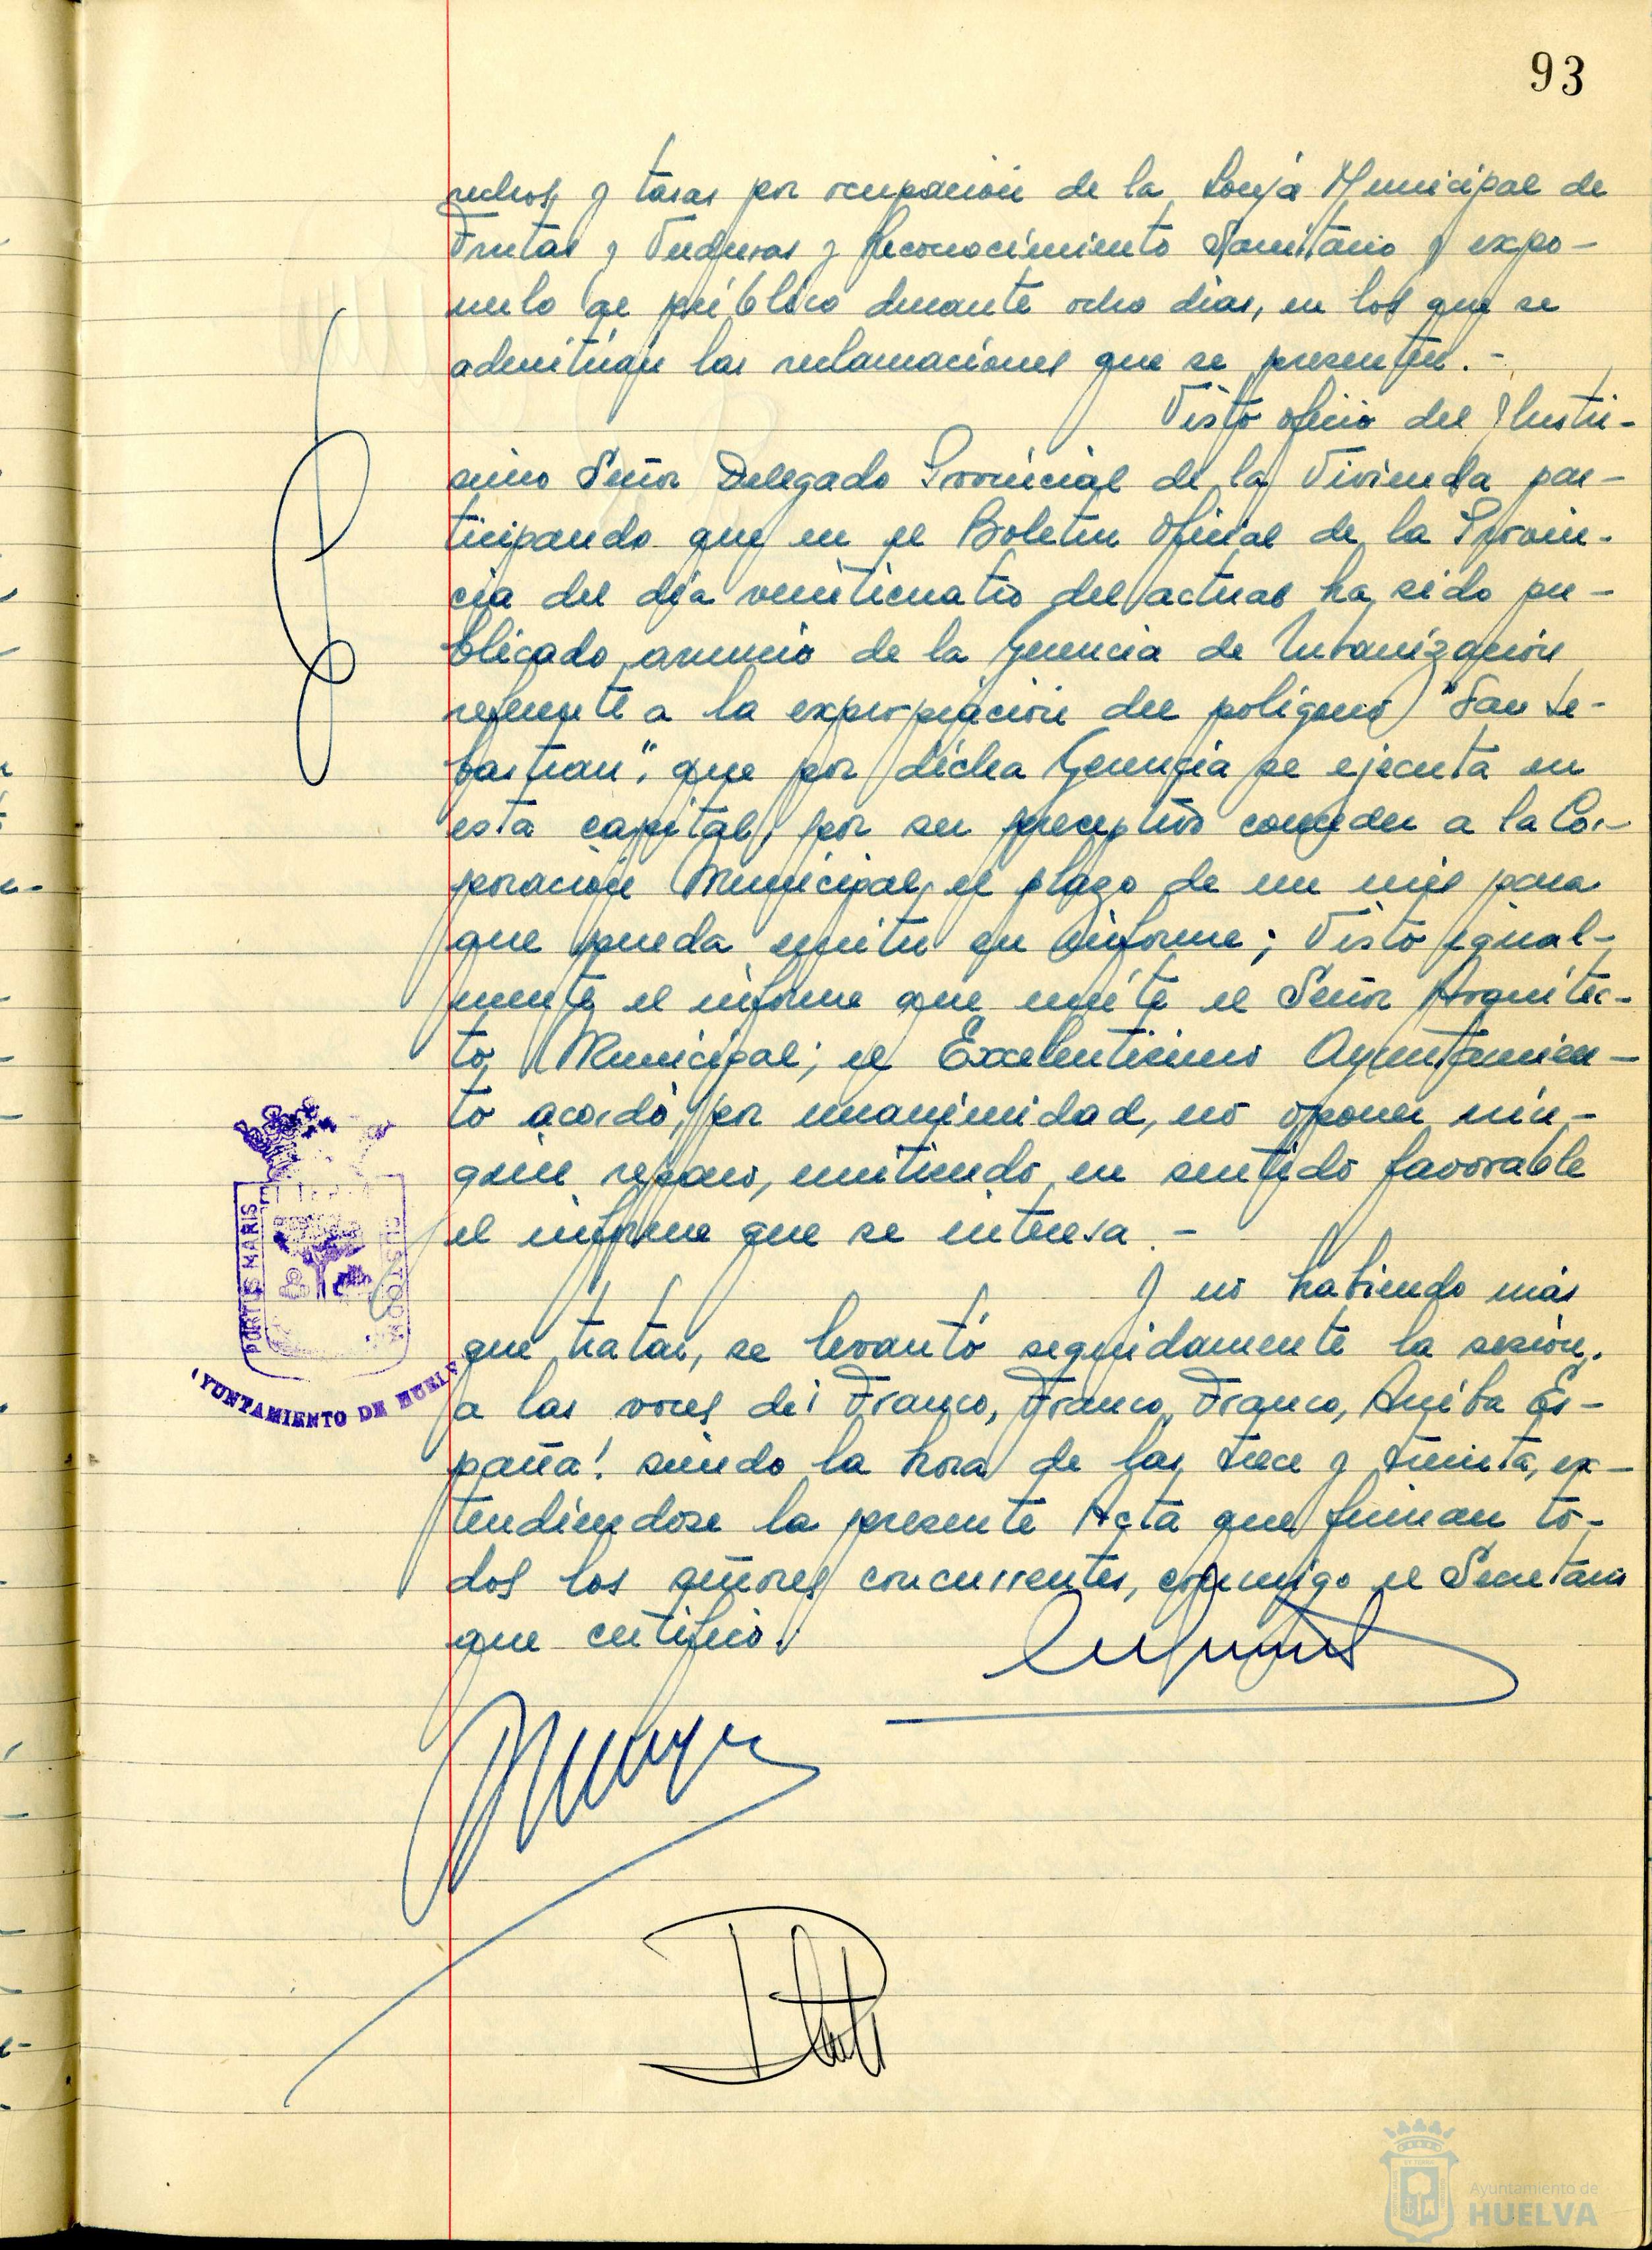 93
rechos y tasas por ocupación de la Lonja Municipal de
Frutas y Verduras y Reconocimiento Sanitario y expo-
nerlo al público durante ocho días, en los que se
admitirán las reclamaciones que se presenten.-
Visto oficio del Ilustri-
simo Señor Delegado Provincial de la Vivienda par-
ticipando que en el Boletin Oficial de la Provin-
cia del día veinticuatro del actual ha sido pu-
blicado anuncio de la Gerencia de Urbanización
referente a la expropiación del poligono "San Se-
bastian", que por dicha Gerencia se ejecuta en
esta capital, por ser preceptivo conceder a la Cor-
poración Municipal el plazo de un mes para
que pueda emitir su informe; Visto igual-
mente el informe que emite el Señor Arquitec-
to Municipal; el Excelentisimo Ayuntamien-
to acordó, por unanimidad, no oponer nin-
gún reparo, emitiendo en sentido favorable
el informe que se interesa.-
Y no habiendo más
que tratar, se levantó seguidamente la sesión.
a las voces de ¡Franco, Franco, Franco, Arriba Es-
paña! siendo la hora de las trece y treinta, ex-
tendiendose la presente Acta que firman to-
dos los señores concurrentes, conmigo el Secretario
que certifico.
PORTUS MARIS
CUSTODIA
AYUNTAMIENTO DE HUELVA
Ayuntamiento de
HUELVA